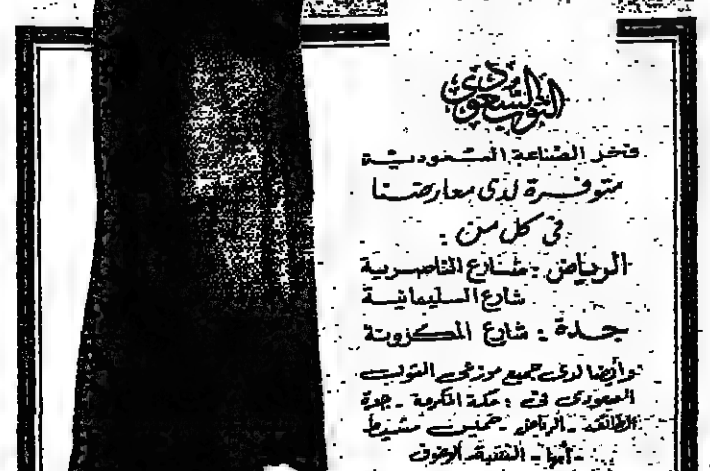 الثوب السعودي
فخر الصناعة السعودية
متوفرة لدى معارضنا
في كل من :
الرياض : شارع الناصرية
شارع السليمانية
جدة : شارع المكرونة
وأيضا لدى جميع موزعي الثوب
السعودي في : مكة المكرمة - جدة
الطائف - الرياض - خميس مشيط
- أبها - النقبة